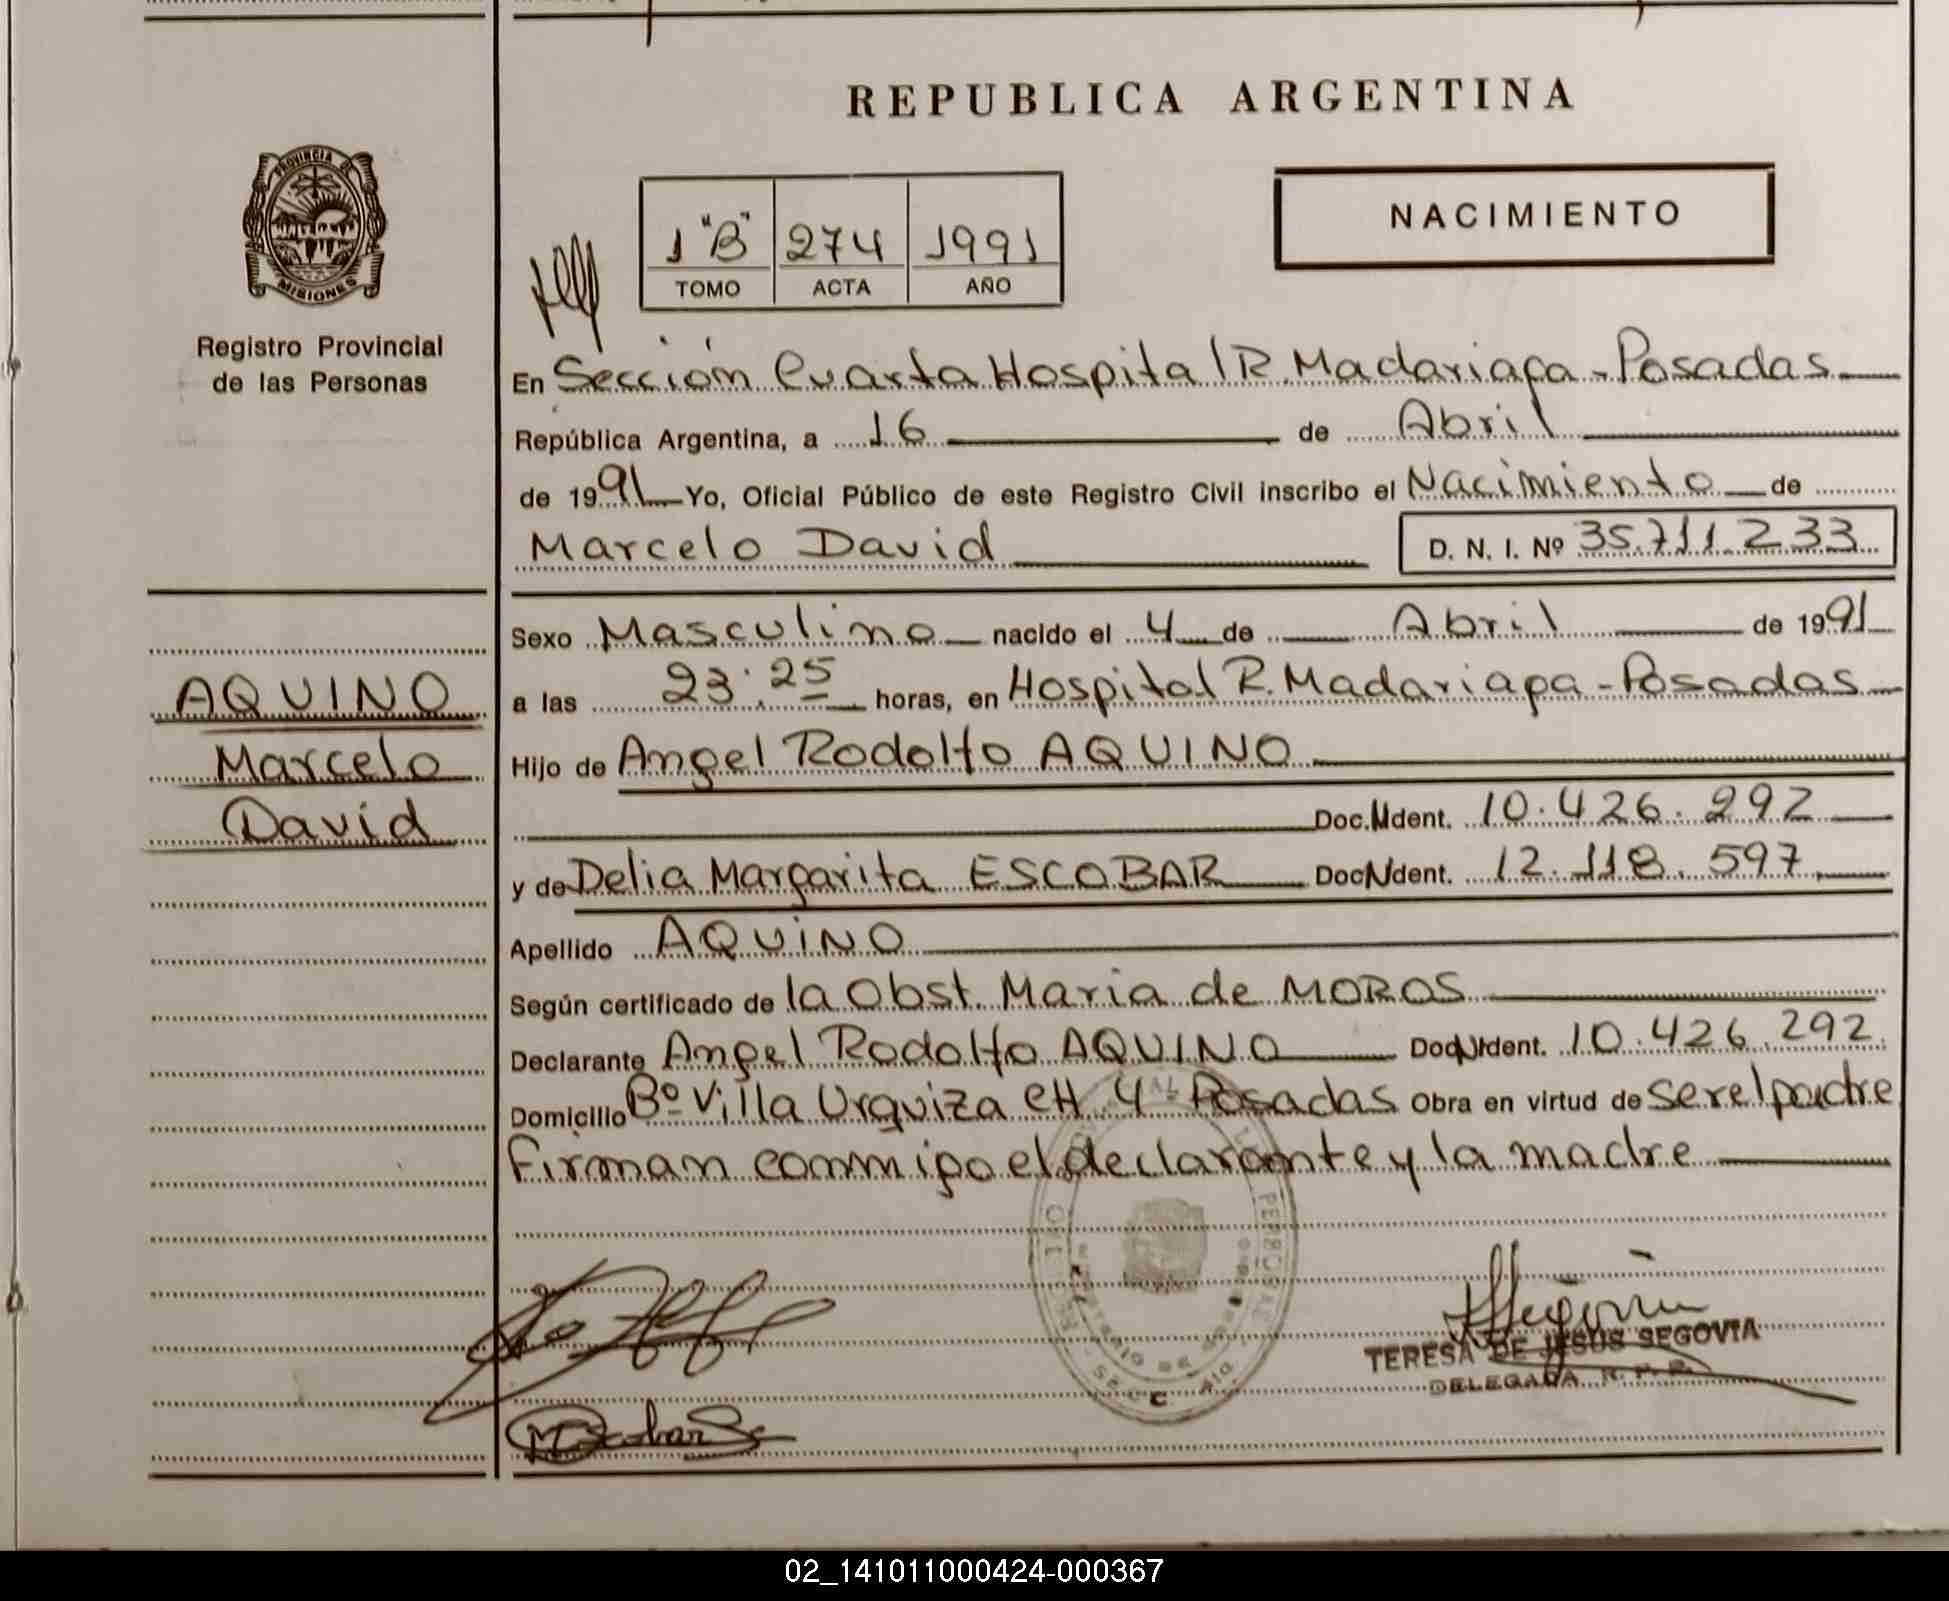 REPUBLICA ARGENTINA
PROVINCIA DE
MISIONES
Registro Provincial
de las Personas
1 "B" 274 1991
TOMO ACTA AÑO
NACIMIENTO
En Sección Cuarta Hospital R. Madariaga - Posadas
República Argentina, a 16 de Abril
de 1991 Yo, Oficial Público de este Registro Civil inscribo el Nacimiento de
Marcelo David D. N. I. Nº 35.711.233
AQUINO
Marcelo
David
Sexo Masculino nacido el 4 de Abril de 1991
a las 23:25 horas, en Hospital R. Madariaga - Posadas
Hijo de Angel Rodolfo AQUINO
Doc. Ident. 10.426.292
y de Delia Margarita ESCOBAR Doc. Ident. 12.118.597
Apellido AQUINO
Según certificado de la Obst. Maria de MOROS
Declarante Angel Rodolfo AQUINO Doc. Ident. 10.426.292
Domicilio Bº Villa Urquiza CH 4 Posadas Obra en virtud de ser el padre
Firman conmigo el declarante y la madre
TERESA DE JESUS SEGOVIA
DELEGADA R. P. P.
02_141011000424-000367